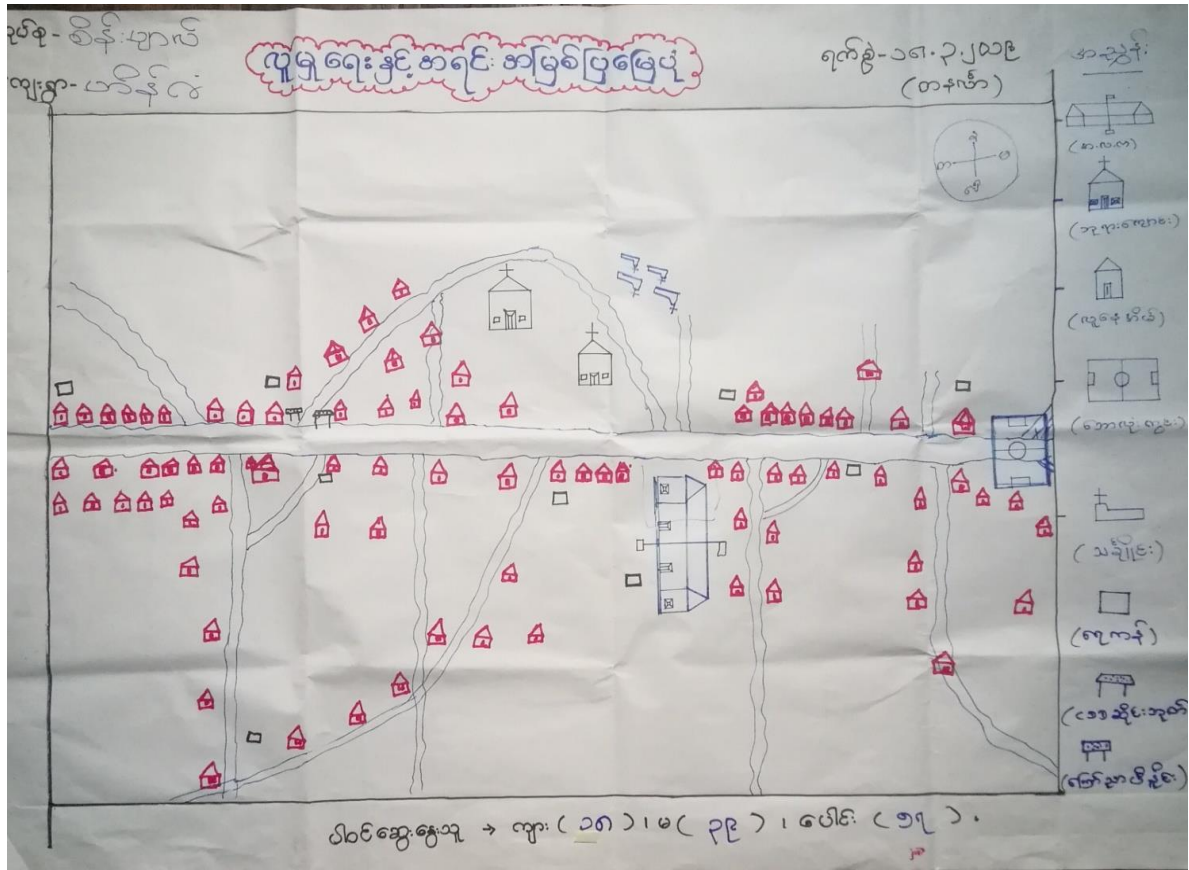 အုပ်စု - စိန်းပျာလ်
ကျေးရွာ - ဟိန်လံ
လူမှုရေးနှင့် အရင်းအမြစ်ပြမြေပုံ
ရက်စွဲ - ၁၈.၃.၂၀၁၉
(တနင်္လာ)
အညွှန်း
(အ.လ.က)
(ဘုရားကျောင်း)
(လူနေအိမ်)
(ဘောလုံးကွင်း)
(သင်္ချိုင်း)
(ရေကန်)
ပါဝင်ဆွေးနွေးသူ → ကျား (၁၈)၊ မ (၃၉)၊ ပေါင်း (၅၇).